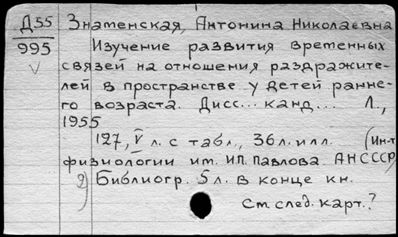 Д55 Знаменская, Антонина Николаевна
995 Изучение развития временных
связей на отношения раздражите-
лей в пространстве у детей ранне-
го возраста. Дисс... канд... Л.,
1955
127, V л. с табл., 36 л. илл. (Ин-т
физиологии им. И.П. Павлова. АНСССР)
2) Библиогр. 5 л. в конце кн.
См. след. карт.?